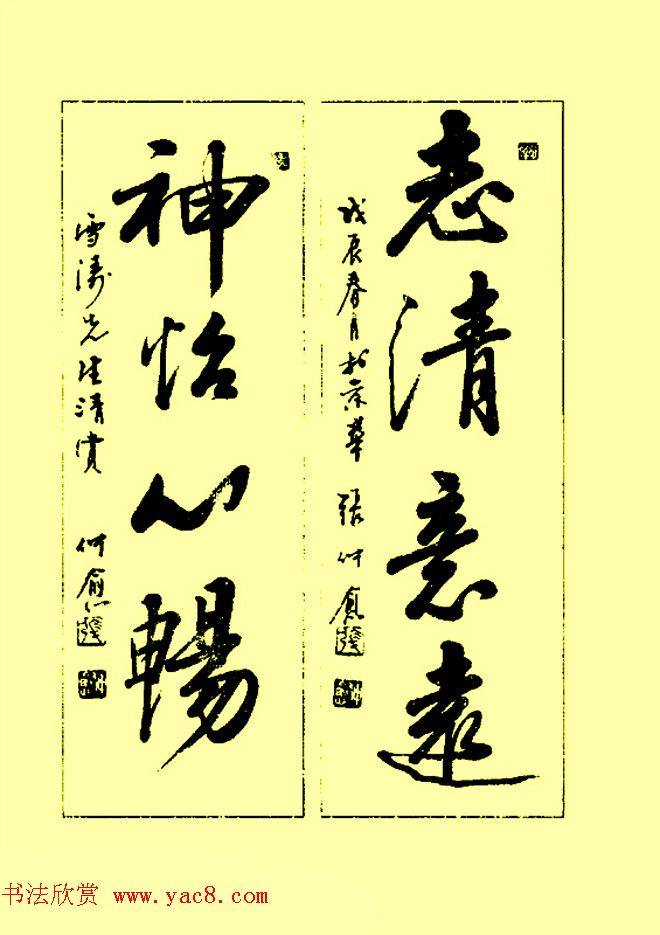 志清意遠
戊辰春月於京華 張仲愈
神怡心暢
雪濤先生清賞 仲愈
书法欣赏 www.yac8.com